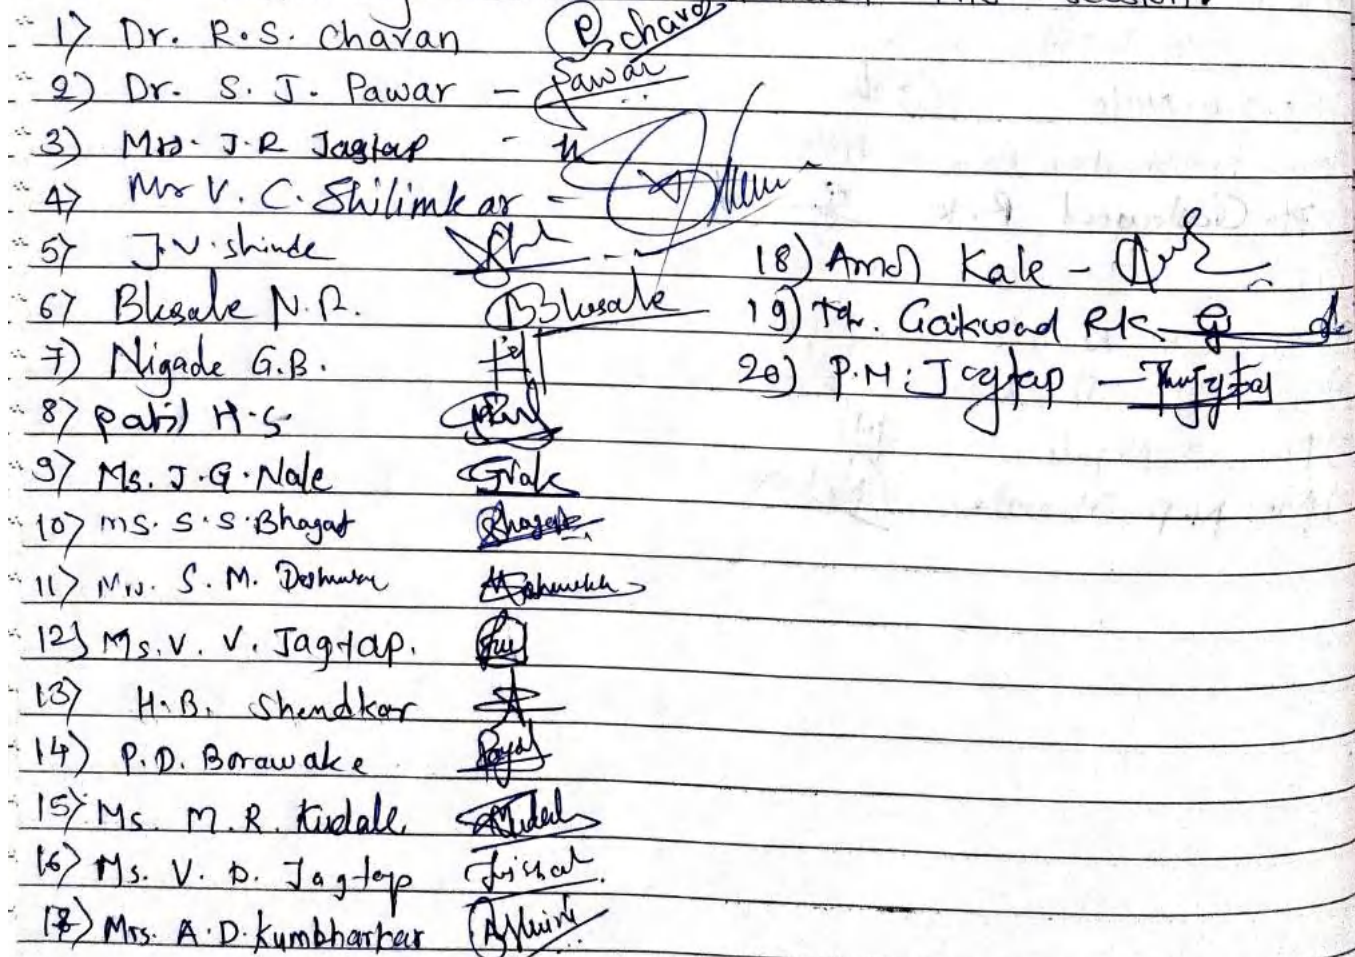 session.
1) Dr. R.S. Chavan P.chavan
2) Dr. S. J. Pawar - Pawar
3) Mrs. J.R Jagtap -
4) Mr V. C. Shilimkar -
5) J.V. shinde
6) Bhosale N.R. Bhosale
7) Nigade G.B.
8) Patil H.S.
9) Ms. J.G. Nale
10) Ms. S.S. Bhagat Bhagat
11) Mrs. S. M. Deshmukh
12) Ms. V. V. Jagtap.
13) H.B. Shendkar
14) P.D. Borawake Payal
15) Ms. M.R. Kudale
16) Ms. V. D. Jagtap
17) Mrs. A.D. Kumbharkar Ashwini
18) Amol Kale -
19) Gaikwad RK
20) P.M. Jagtap -